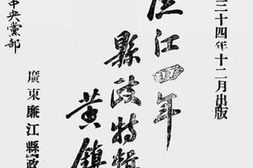 三十四年十二月出版
廉江一年
縣政特輯
黄鎮
廣東廉江縣政
中央黨部